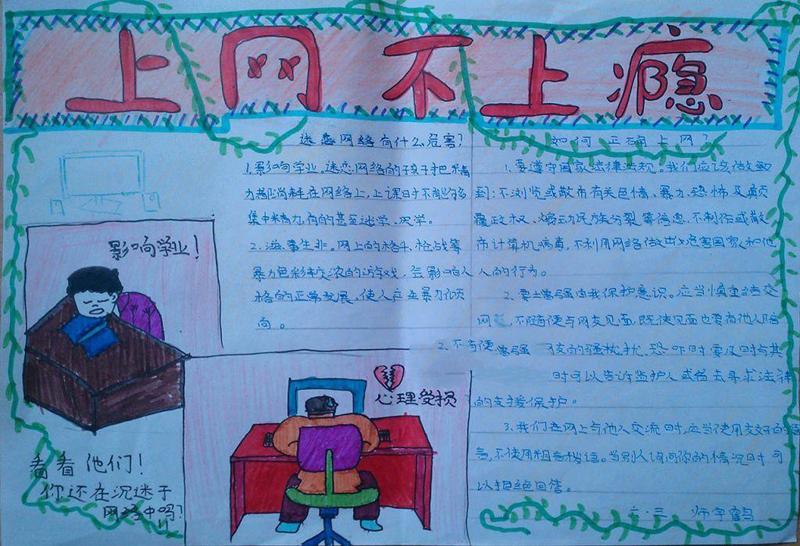 上网不上瘾
迷恋网络有什么危害？
1.影响学业，迷恋网络的孩子把精
力都消耗在网络上，上课日子不能够
集中精力，有的甚至逃学、厌学。
2.滋事生非。网上的格斗、枪战等
暴力色彩较浓的游戏，会影响人
格的正常发展，使人产生暴力倾
向。
如何正确上网？
1.要遵守国家法律法规。我们应该做到
到：不浏览或散布有关色情、暴力、恐怖及颠
覆政权、煽动民族分裂等信息，不制作或散
布计算机病毒，不利用网络做出危害国家和他
人的行为。
2.要增强自我保护意识。应当慎重结交
网友，不随便与网友见面，既使见面也要有他人陪
2.不随便
的骚扰、恐吓时要及时与其
时可以告诉监护人或者去寻求法律
的支援保护。
3.我们在网上与他人交流时，应当使用文明的语
言，不使用粗言秽语。当别人询问你的情况时可
以拒绝回答。
影响学业！
心理受损
看看他们！
你还在沉迷于
网络中吗？
六·三